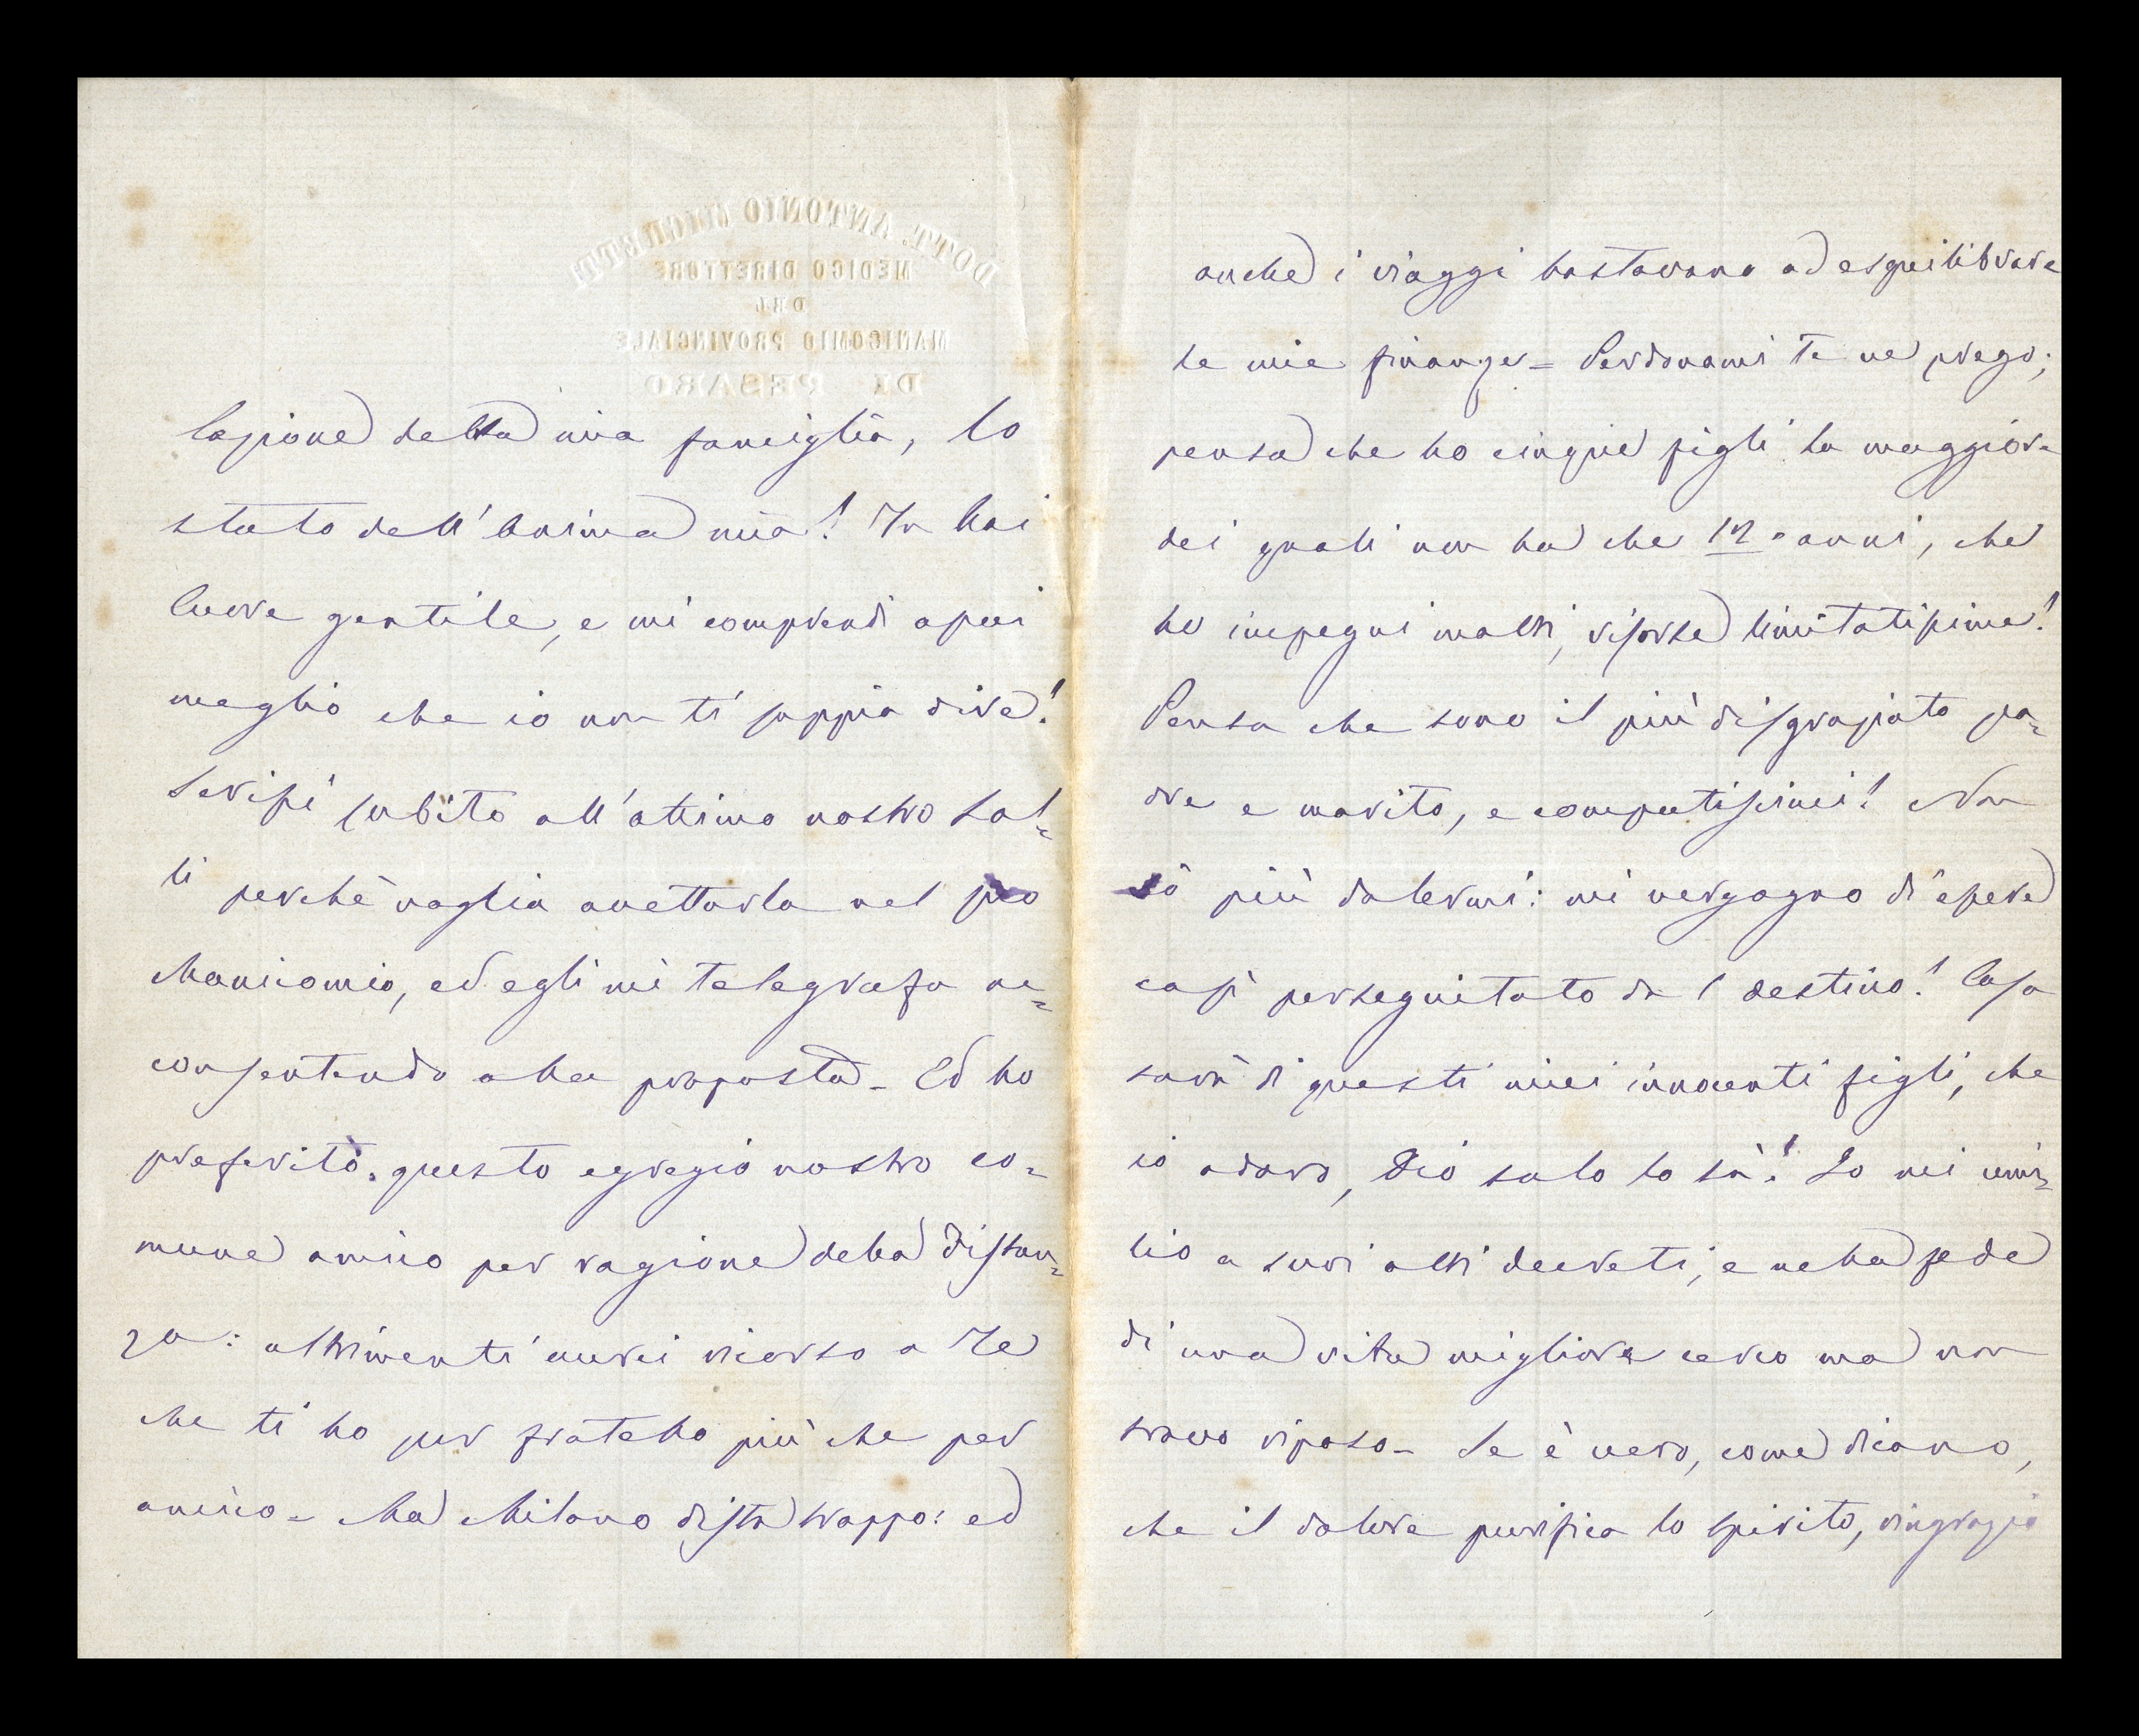 DOTT. ANTONIO MICHETTI
MEDICO DIRETTORE
DEL
MANICOMIO PROVINCIALE
DI PESARO
lazione della mia famiglia, lo
stato dell'anima mia! Tu hai
cuore gentile, e mi comprendi assai
meglio che io non ti sappia dire!
Scrissi subito all'ottimo nostro Sol=
li perchè voglia accettarla nel suo
Manicomio, ed egli mi telegrafa ac=
consentendo alla proposta_ Ed ho
preferito questo egregio nostro co=
mune amico per ragione della distan=
za: altrimenti avrei ricorso a Te
che ti ho per fratello più che per
amico_ Ma Milano dista troppo: ed
anche i viaggi bastavano ad esquilibrare
le mie finanze_ Perdonami te ne prego;
pensa che ho cinque figli la maggiore
dei quali non ha che 12 anni, che
ho impegni molti, risorse limitatissime!
Pensa che sono il più disgraziato pa=
dre e marito, e compatiscimi! Non
sò più dolermi: mi vergogno di essere
così perseguitato dal destino! Cosa
sarà di questi miei innocenti figli, che
io adoro, Dio solo lo sà! Io mi umi=
lio a suoi alti decreti, e nella fede
di una vita migliore cerco ma non
trovo riposo_ Se è vero, come dicono,
che il dolore purifica lo spirito, ringrazio